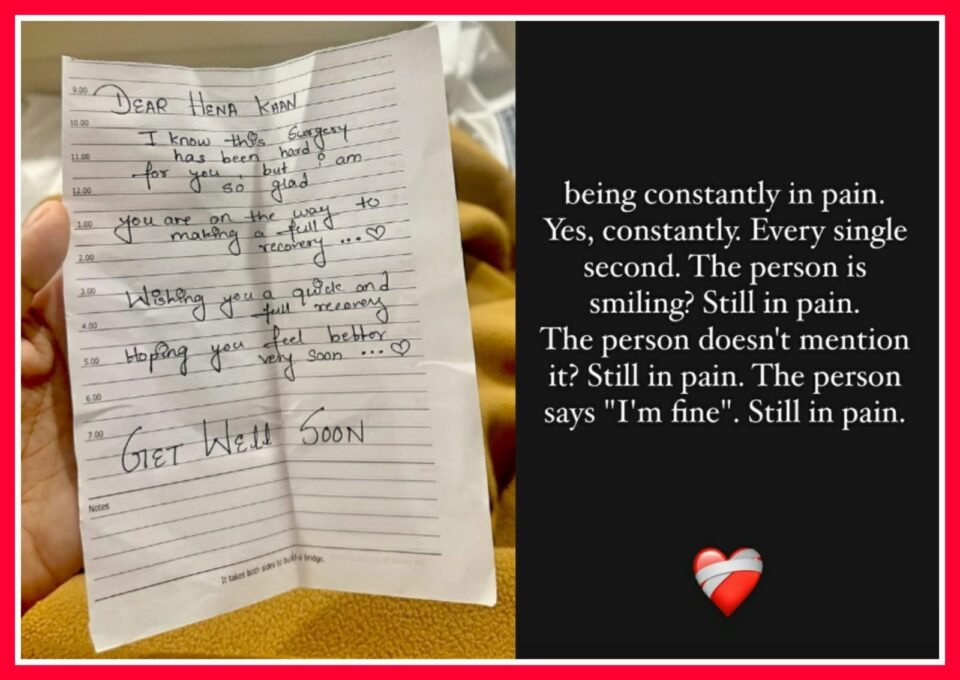 9.00
DEAR HENA KHAN
10.00
I know this surgery
11.00
has been hard
for you, but i am
12.00
so glad
1.00
you are on the way to
making a full
recovery ...♡
2.00
3.00
Wishing you a quick and
full recovery
4.00
5.00
Hoping you feel better
very soon ...♡
6.00
7.00
GET WELL SOON
Notes
It takes both sides to build a bridge.
being constantly in pain.
Yes, constantly. Every single
second. The person is
smiling? Still in pain.
The person doesn't mention
it? Still in pain. The person
says "I'm fine". Still in pain.